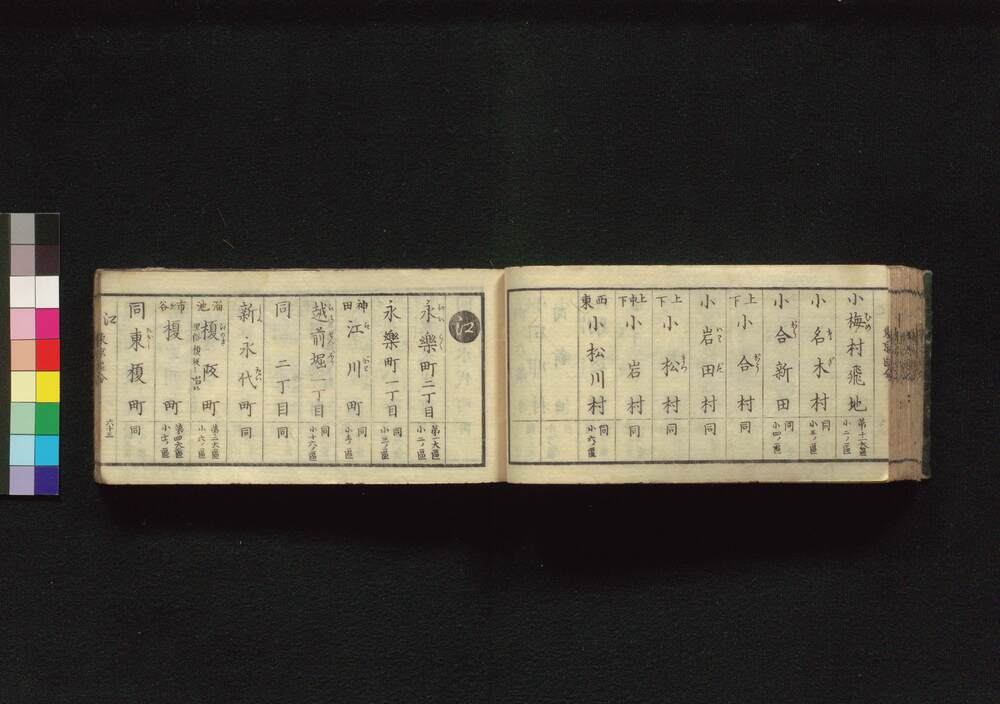 小梅村飛地 第十一大區 小二ノ區
小名木村 同 小三ノ區
小合新田 同 小四ノ區
上下 小合村 同
小岩田村 同
上下 小松村 同
上中下 小岩村 同
西東 小松川村 同 小六ノ區
江
永樂町二丁目 第一大區 小二ノ區
永樂町一丁目 同 小三ノ區
神田 江川町 同
越前堀一丁目 同 小十六ノ區
同 二丁目 同
新永代町 同
溜池 榎阪町 第二大區 小六ノ區
市ヶ谷 榎町 第四大區
同東榎町 同
江
六十三